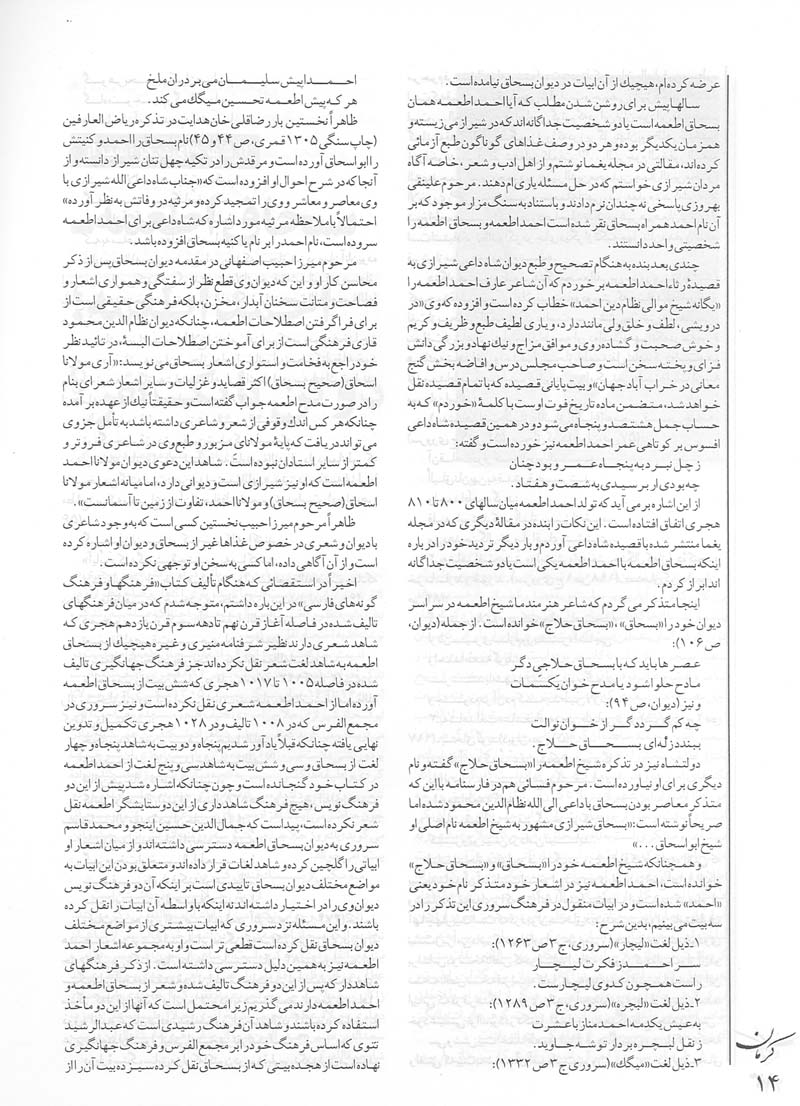 عرضه کرده‌ام، هیچیک از آن ابیات در دیوان بسحاق نیامده است.
سالها پیش برای روشن شدن مطلب که آیا احمد اطعمه همان
بسحاق اطعمه است یا دو شخصیت جداگانه‌اند که در شیراز می‌زیسته و
همزمان یکدیگر بوده و هر دو در وصف غذاهای گوناگون طبع آزمائی
کرده‌اند، مقالتی در مجله یغما نوشتم و از اهل ادب و شعر، خاصه آگاه
مردان شیرازی خواستم که در حل مسئله یاری ام دهند. مرحوم علینقی
بهروزی پاسخی نه چندان نرم دادند و با استناد به سنگ مزار موجود که بر
آن نام احمد همراه بسحاق نقر شده است احمد اطعمه و بسحاق اطعمه را
شخصیتی واحد دانستند.
چندی بعد بنده به هنگام تصحیح و طبع دیوان شاه داعی شیرازی به
قصیدهٔ رثاء احمد اطعمه برخوردم که آن شاعر عارف احمد اطعمه را
«یگانه شیخ موالی نظام دین احمد» خطاب کرده است و افزوده که وی «در
درویشی، لطف و خلق ولی مانند دارد، و یاری لطیف طبع و ظریف و کریم
و خوش صحبت و گشاده روی و موافق مزاج و نیک نهاد و بزرگی دانش
فزای و پخته سخن است و صاحب مجلس درس و افاضه بخش گنج
معانی در خراب آباد جهان» و بیت پایانی قصیده که با تمام قصیده نقل
خواهد شد، متضمن ماده تاریخ فوت اوست با کلمهٔ «خوردم» که به
حساب جمل هشتصد و پنجاه می‌شود و در همین قصیده شاه داعی
افسوس بر کوتاهی عمر احمد اطعمه نیز خورده است و گفته:
ز چل نبرد به پنجاه عمر و بود چنان
چه بودی ار برسیدی به شصت و هفتاد.
از این اشاره برمی آید که تولد احمد اطعمه میان سالهای ۸۰۰ تا ۸۱۰
هجری اتفاق افتاده است. این نکات را بنده در مقالهٔ دیگری که در مجله
یغما منتشر شد با قصیده شاه داعی آوردم و بار دیگر تردید خود را درباره
اینکه بسحاق اطعمه با احمد اطعمه یکی است یا دو شخصیت جداگانه
اند ابراز کردم.
اینجا متذکر می گردم که شاعر هنرمند ما شیخ اطعمه در سراسر
دیوان خود را «بسحاق»، «بسحاق حلاج» خوانده است. از جمله (دیوان،
ص ۱۰۶):
عصرها باید که با بسحاق حلاجی دگر
مادح حلوا شود یا مدح خوان یکسمات
و نیز (دیوان، ص ۹۴):
چه کم گردد گر از خوان نوالت
ببندد زله‌ای بسحاق حلاج.
دولتشاه نیز در تذکره شیخ اطعمه را «بسحاق حلاج» گفته و نام
دیگری برای او نیاورده است. مرحوم فسائی هم در فارسنامه با این که
متذکر معاصر بودن بسحاق با داعی الی الله نظام الدین محمود شده اما
صریحاً نوشته است: «بسحاق شیرازی مشهور به شیخ اطعمه نام اصلی او
شیخ ابواسحاق...»
و همچنانکه شیخ اطعمه خود را «بسحاق» و «بسحاق حلاج»
خوانده است، احمد اطعمه نیز در اشعار خود متذکر نام خود یعنی
«احمد» شده است و در ابیات منقول در فرهنگ سروری این تذکر را در
سه بیت می بینیم، بدین شرح:
۱ـ ذیل لغت «لیچار» (سروری، ج ۳ ص ۱۲۶۳):
سر احمد ز فکرت لیچار
راست همچون کدوی لیچار است.
۲ـ ذیل لغت «لیچره» (سروری، ج ۳ ص ۱۲۸۹):
به عیش یکدمه احمد مناز با عشرت
ز نقل لیچره بردار توشه جاوید.
۳ـ ذیل لغت «میگک» (سروری ج ۳ ص ۱۳۳۲):
احمدا پیش سلیمان می بر د ران ملخ
هر که پیش اطعمه تحسین میگک می کند.
ظاهراً نخستین بار رضاقلی خان هدایت در تذکره ریاض العارفین
(چاپ سنگی ۱۳۰۵ قمری، ص ۴۴ و ۴۵) نام بسحاق را احمد و کنیتش
را ابواسحاق آورده است و مرقدش را در تکیه چهل تنان شیراز دانسته و از
آنجا که در شرح احوال او افزوده است که «جناب شاه داعی الله شیرازی با
وی معاصر و معاشر و وی را تمجید کرده و مرثیه در وفاتش به نظر آورده»
احتمالاً با ملاحظه مرثیه مورد اشاره که شاه داعی برای احمد اطعمه
سروده است، نام احمد را بر نام یا کنیه بسحاق افزوده باشد.
مرحوم میرزا حبیب اصفهانی در مقدمه دیوان بسحاق پس از ذکر
محاسن کار او و این که دیوان وی قطع نظر از سفتگی و همواری اشعار و
فصاحت و متانت سخنان آبدار، مخزن، بلکه فرهنگی حقیقی است از
برای فرا گرفتن اصطلاحات اطعمه، چنانکه دیوان نظام الدین محمود
قاری فرهنگی است از برای آموختن اصطلاحات البسهٔ، در تائید نظر
خود راجع به فخامت و استواری اشعار بسحاق می نویسد: «آری مولانا
اسحاق (صحیح بسحاق) اکثر قصاید و غزلیات و سایر اشعار شعرای بنام
را در صورت مدح اطعمه جواب گفته است و حقیقتاً نیک از عهده بر آمده
چنانکه هر کس اندک وقوفی از شعر و شاعری داشته باشد به تأمل جزوی
می تواند دریافت که پایهٔ مولانای مزبور و طبع وی در شاعری فروتر و
کمتر از سایر استادان نبوده است. شاهد این دعوی دیوان مولانا احمد
اطعمه است که او نیز شیرازی است و دیوانی دارد، اما میانه اشعار مولانا
اسحاق (صحیح بسحاق) و مولانا احمد، تفاوت از زمین تا آسمانست».
ظاهراً مرحوم میرزا حبیب نخستین کسی است که به وجود شاعری
با دیوان و شعری در خصوص غذاها غیر از بسحاق و دیوان او اشاره کرده
است و از آن آگاهی داده، اما کسی به سخن او توجهی نکرده است.
اخیراً در استقصائی که هنگام تألیف کتاب «فرهنگها و فرهنگ
گونه‌های فارسی» در این باره داشتم، متوجه شدم که در میان فرهنگهای
تالیف شده در فاصله آغاز قرن نهم تا دهه سوم قرن یازدهم هجری که
شاهد شعری دارند نظیر شرفنامه منیری و غیره هیچیک از بسحاق
اطعمه به شاهد لغت شعر نقل نکرده اند جز فرهنگ جهانگیری تالیف
شده در فاصله ۱۰۰۵ تا ۱۰۱۷ هجری که شش بیت از بسحاق
آورده اما از احمد اطعمه شعری نقل نکرده است و نیز سروری در
مجمع الفرس که در ۱۰۰۸ تالیف و در ۱۰۲۸ هجری تکمیل و تدوین
نهایی یافته چنانکه قبلاً یادآور شدیم پنجاه و دو بیت به شاهد پنجاه و چهار
لغت از بسحاق و سی و شش بیت به شاهد سی و پنج لغت از احمد اطعمه
در کتاب خود گنجانده است و چون چنانکه اشاره شد پیش از این دو
فرهنگ نویس، هیچ فرهنگ شاهدداری از این دو ستایشگر اطعمه نقل
شعر نکرده است، پیداست که جمال الدین حسین اینجو و محمد قاسم
سروری به دیوان بسحاق اطعمه دسترسی داشته اند و از میان اشعار او
ابیاتی را گلچین کرده و شاهد لغات قرار داده اند و متعلق بودن این ابیات به
مواضع مختلف دیوان بسحاق تاییدی است بر اینکه آن دو فرهنگ نویس
دیوان وی را در اختیار داشته اند نه اینکه با واسطه آن ابیات را نقل کرده
باشند. و این مسئله نزد سروری که ابیات بیشتری از مواضع مختلف
دیوان بسحاق نقل کرده است قطعی تر است و او به مجموعه اشعار احمد
اطعمه نیز به همین دلیل دسترسی داشته است. از ذکر فرهنگهای
شاهددار که پس از این دو فرهنگ تالیف شده و شعر از بسحاق اطعمه و
احمد اطعمه دارند می گذریم زیرا محتمل است که آنها از این دو مأخذ
استفاده کرده باشند و شاهد آن فرهنگ رشیدی است که عبدالرشید
تتوی که اساس فرهنگ خود را بر مجمع الفرس و فرهنگ جهانگیری
نهاده است از هجده بیتی که از بسحاق نقل کرده سیزده بیت آن را از
کرمان
۱۴